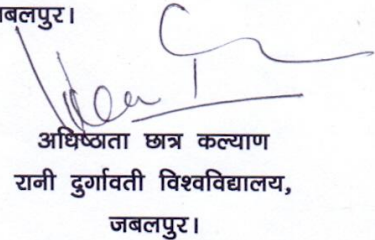 जबलपुर।
अधिष्ठाता छात्र कल्याण
रानी दुर्गावती विश्वविद्यालय,
जबलपुर।